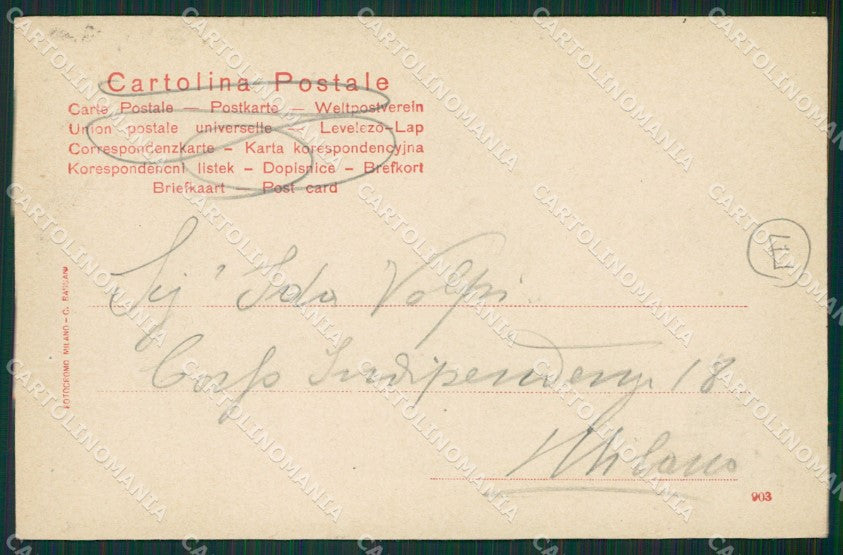 Cartolina Postale
Carte Postale — Postkarte — Weltpostverein
Union postale universelle — Levelezö-Lap
Correspondenzkarte - Karta korespondencyjna
Korespondencni listek - Dopisnice - Brefkort
Briefkaart — Post card
FOTOCROMO MILANO - C.
Sig.ª Ida Volpi
Corso Indipendenza 18
Milano
903
CARTOLINOMANIA